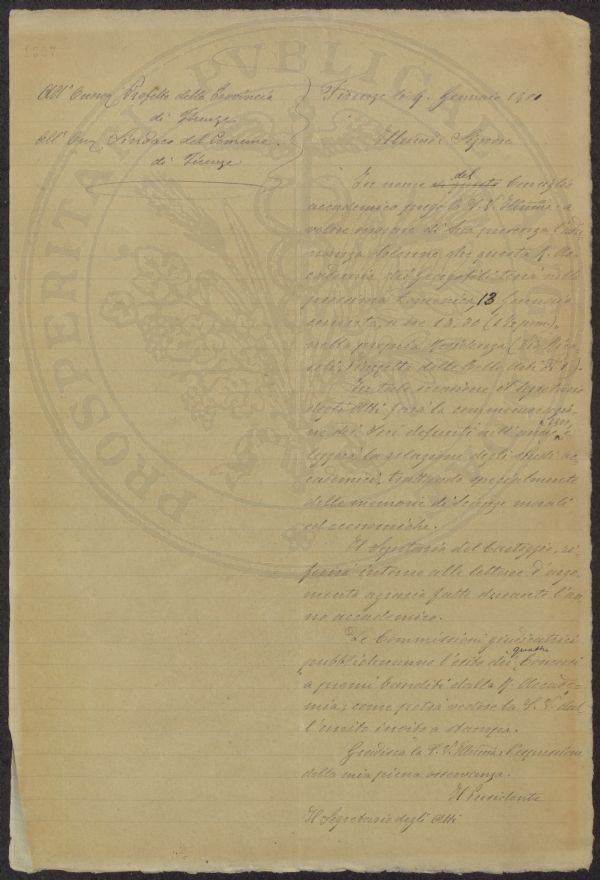 All' Onor. Prefetto della Provincia
di Firenze
All' Onor. Sindaco del Comune
di Firenze
Firenze lì 9. Gennaio 1901
Illmo Signore
In nome del Consiglio
accademico prego la S. V. Illma a
volere onorare di Sua presenza l'adu
nanza solenne che questa R. Ac
cademia dei Georgofili terrà nella
prossima Domenica, 13 Gennaio
corrente, a ore 13,30 (1 1/2 pom.)
nella propria Residenza
delle Belle Arti
In tale occasione il Segretario
degli Atti farà la commemorazio
ne dei Soci defunti nell'anno 1900, e
leggerà la relazione degli studi ac
cademici, trattando specialmente
delle memorie di Scienze morali
ed economiche.
Il Segretario del Carteggio, ri
ferirà intorno alle letture d'argo
mento agrario fatte durante l'an
no accademico.
Le Commissioni giudicatrici
pubblicheranno l'esito dei quattro Concorsi
a premi banditi dalla R. Accade
mia; come potrà vedere la S. V. dal
l'unito invito a stampa.
Gradisca la S. V. Illma l'espressione
della mia piena osservanza.
Il Presidente
Il Segretario degli Atti
PROSPERITATI PUBLICAE